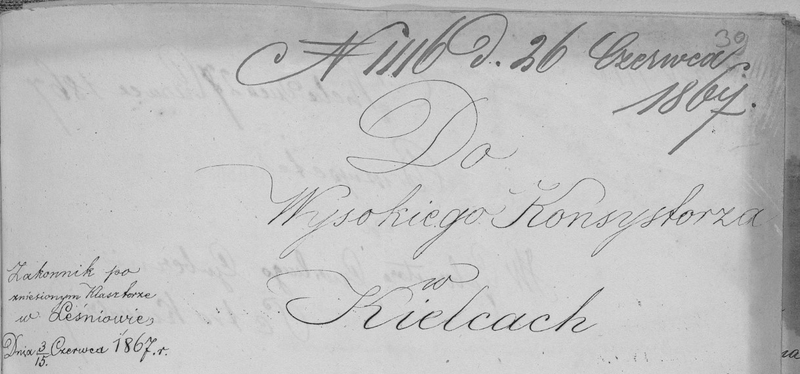 39
N 1116 d. 26 Czerwca
1867.
Do
Wysokiego Konsystorza
w
Kielcach
Zakonnik po
zniesionym Klasztorze
w Leśniowie,
Dnia 3/15. Czerwca 1867. r.